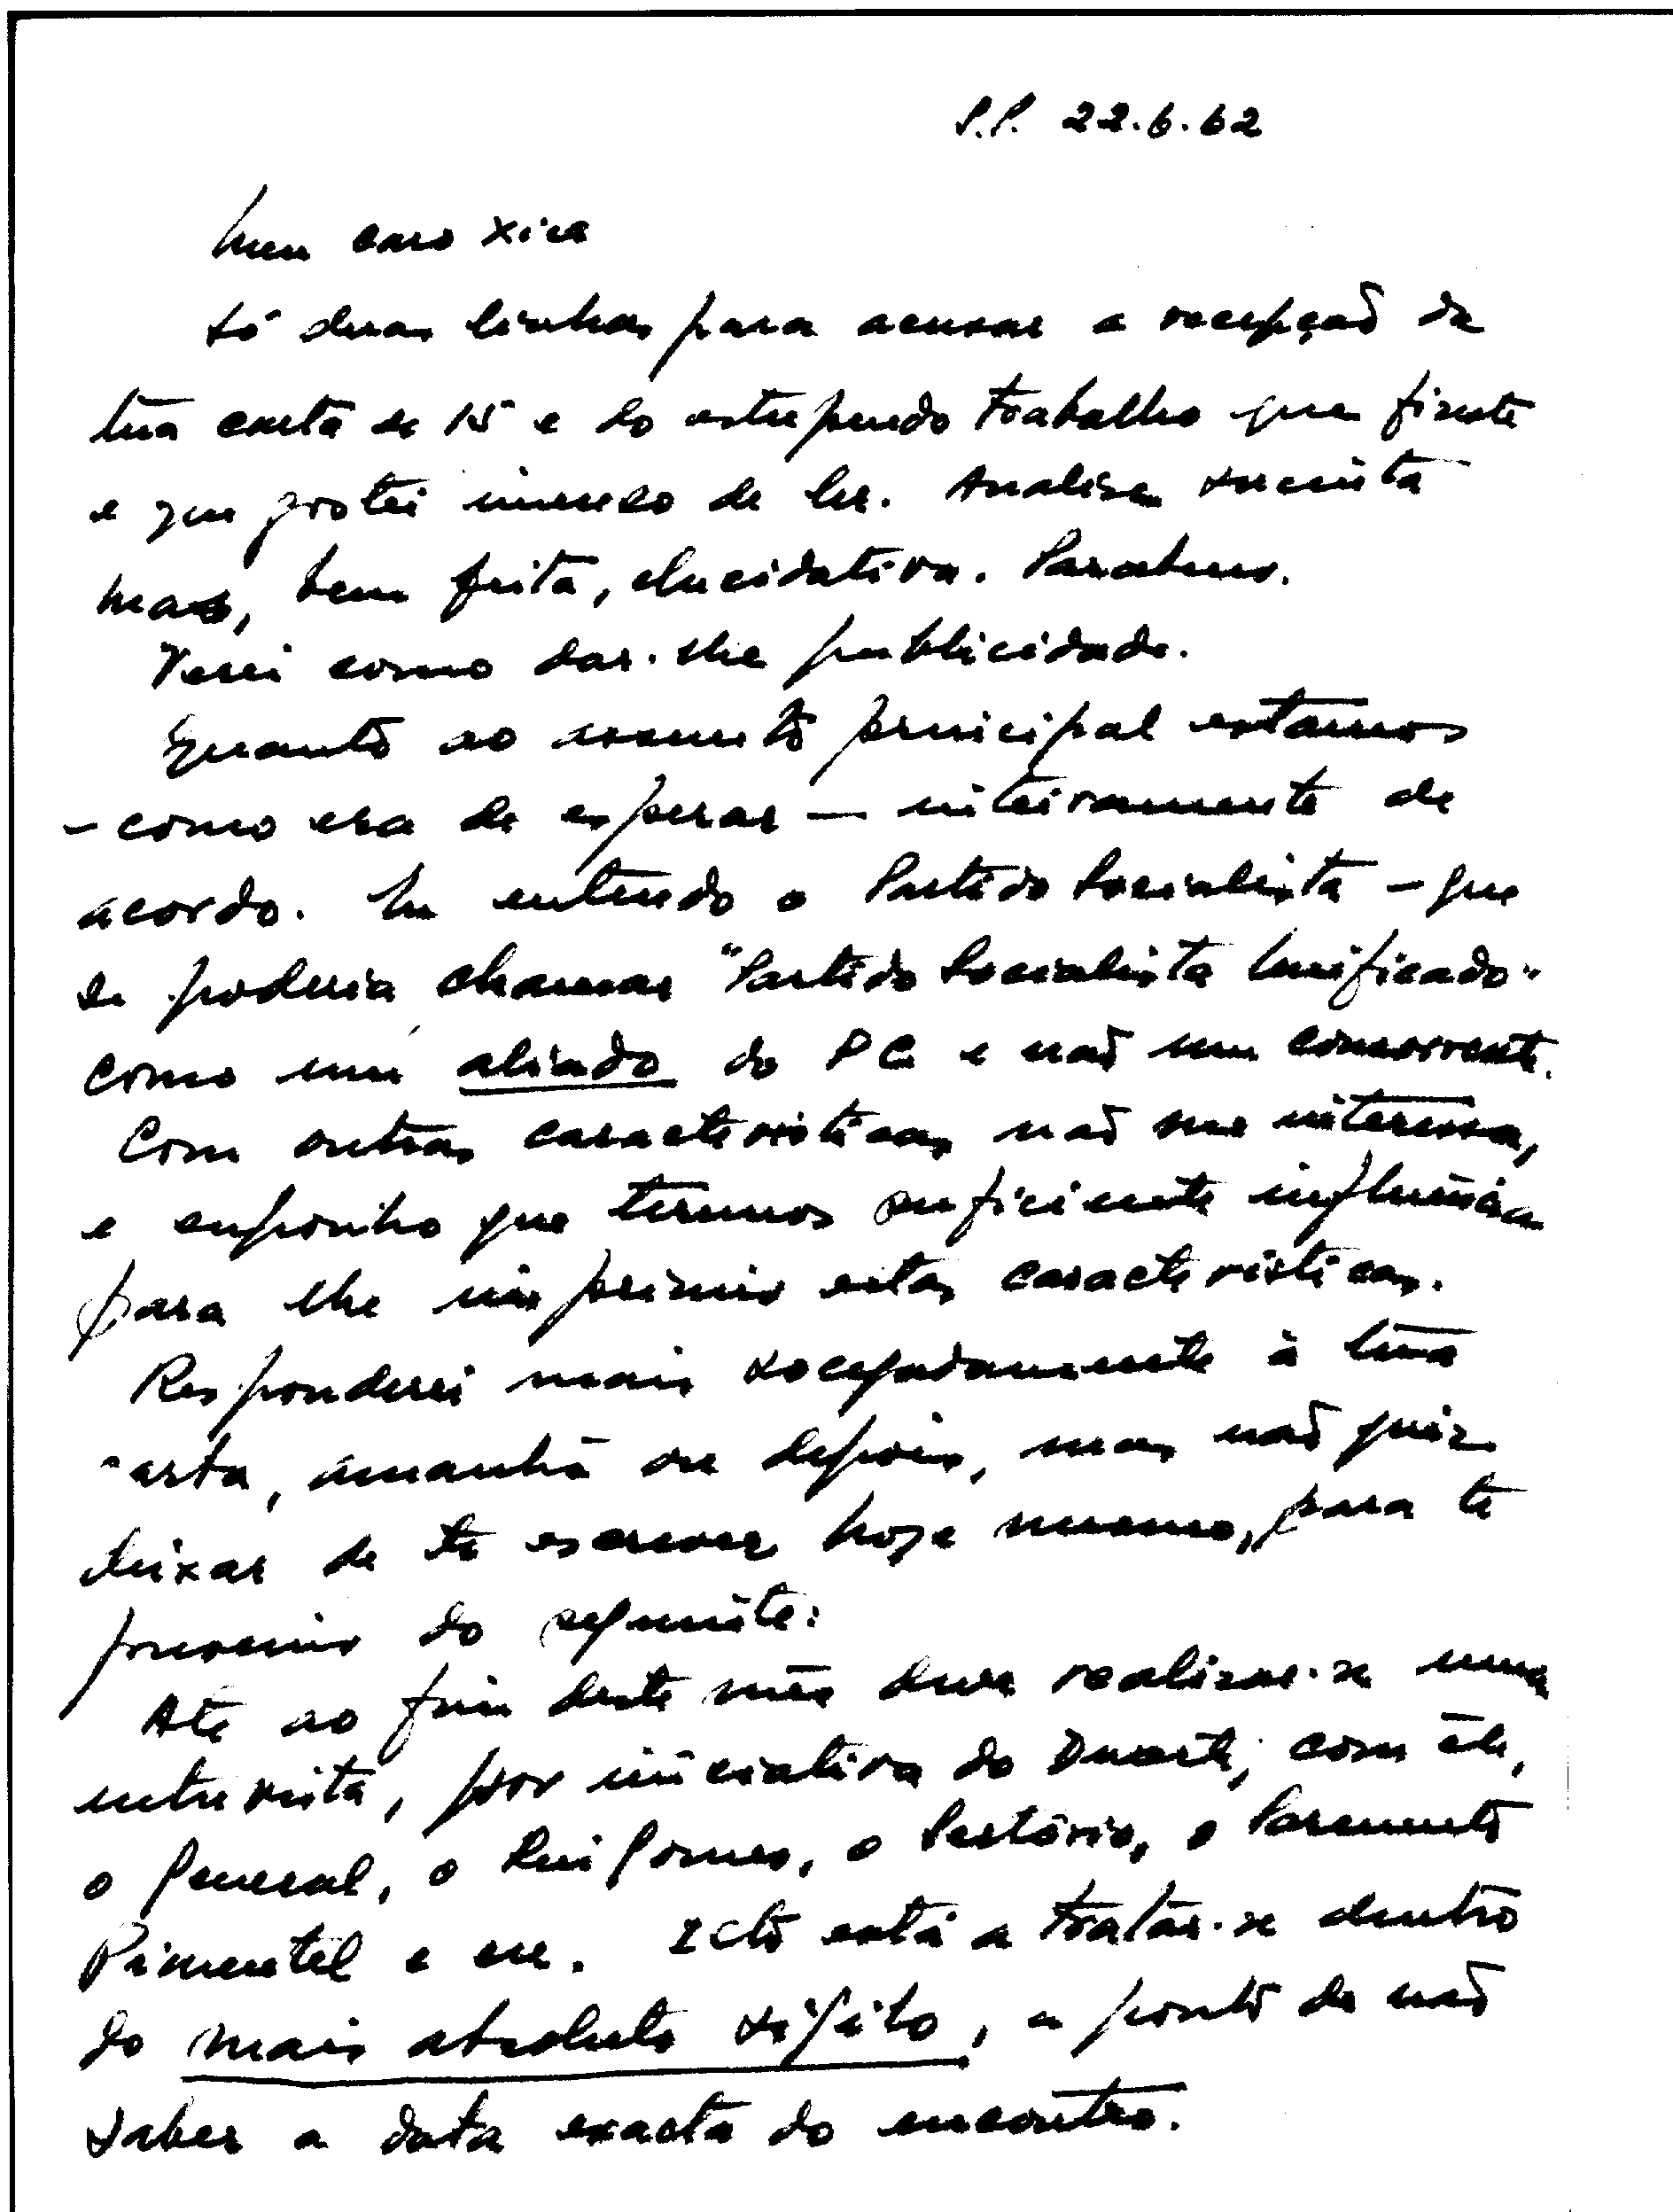 S.P. 22.6.62
Meu caro Xico
Só duas linhas para acusar a recepção da
tua carta de 15 e do estupendo trabalho que fizeste
e que gostei imenso de ler. Analise sucinta
mas, bem feita, elucidativa. Parabens.
Verei como dar-lhe publicidade.
Quanto ao assunto principal estamos
- como era de esperar - inteiramente de
acordo. Eu entendo o Partido Socialista - que
se poderia chamar "Partido Socialista Unificado"
como um aliado do PC e não um concorrente.
Com outras caracteristicas não me interessa,
e suponho que teremos suficiente influência
para lhe imprimir estas caracteristicas.
Responderei mais socegadamente à tua
carta, amanhã ou depois, mas não quiz
deixar de te escrever hoje mesmo, para te
prevenir do seguinte:
Até ao fim deste mês deve realizar-se uma
entrevista, por iniciativa do Duarte, com êle,
o General, o Rui Gomes, o Sertório, o Sarmento
Pimentel e eu. Isto está a tratar-se dentro
do mais absoluto sigilo, a ponto de não
saber a data exacta do encontro.